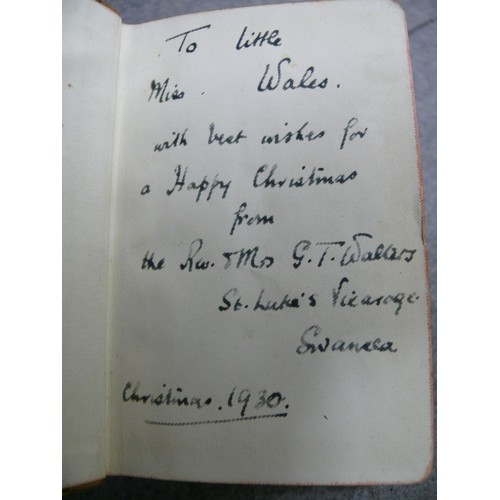 To little
Miss. Wales.
with best wishes for
a Happy Christmas
from
the Rev. & Mrs G. T. Walters
St. Luke's Vicarage.
Swansea
Christmas. 1930.